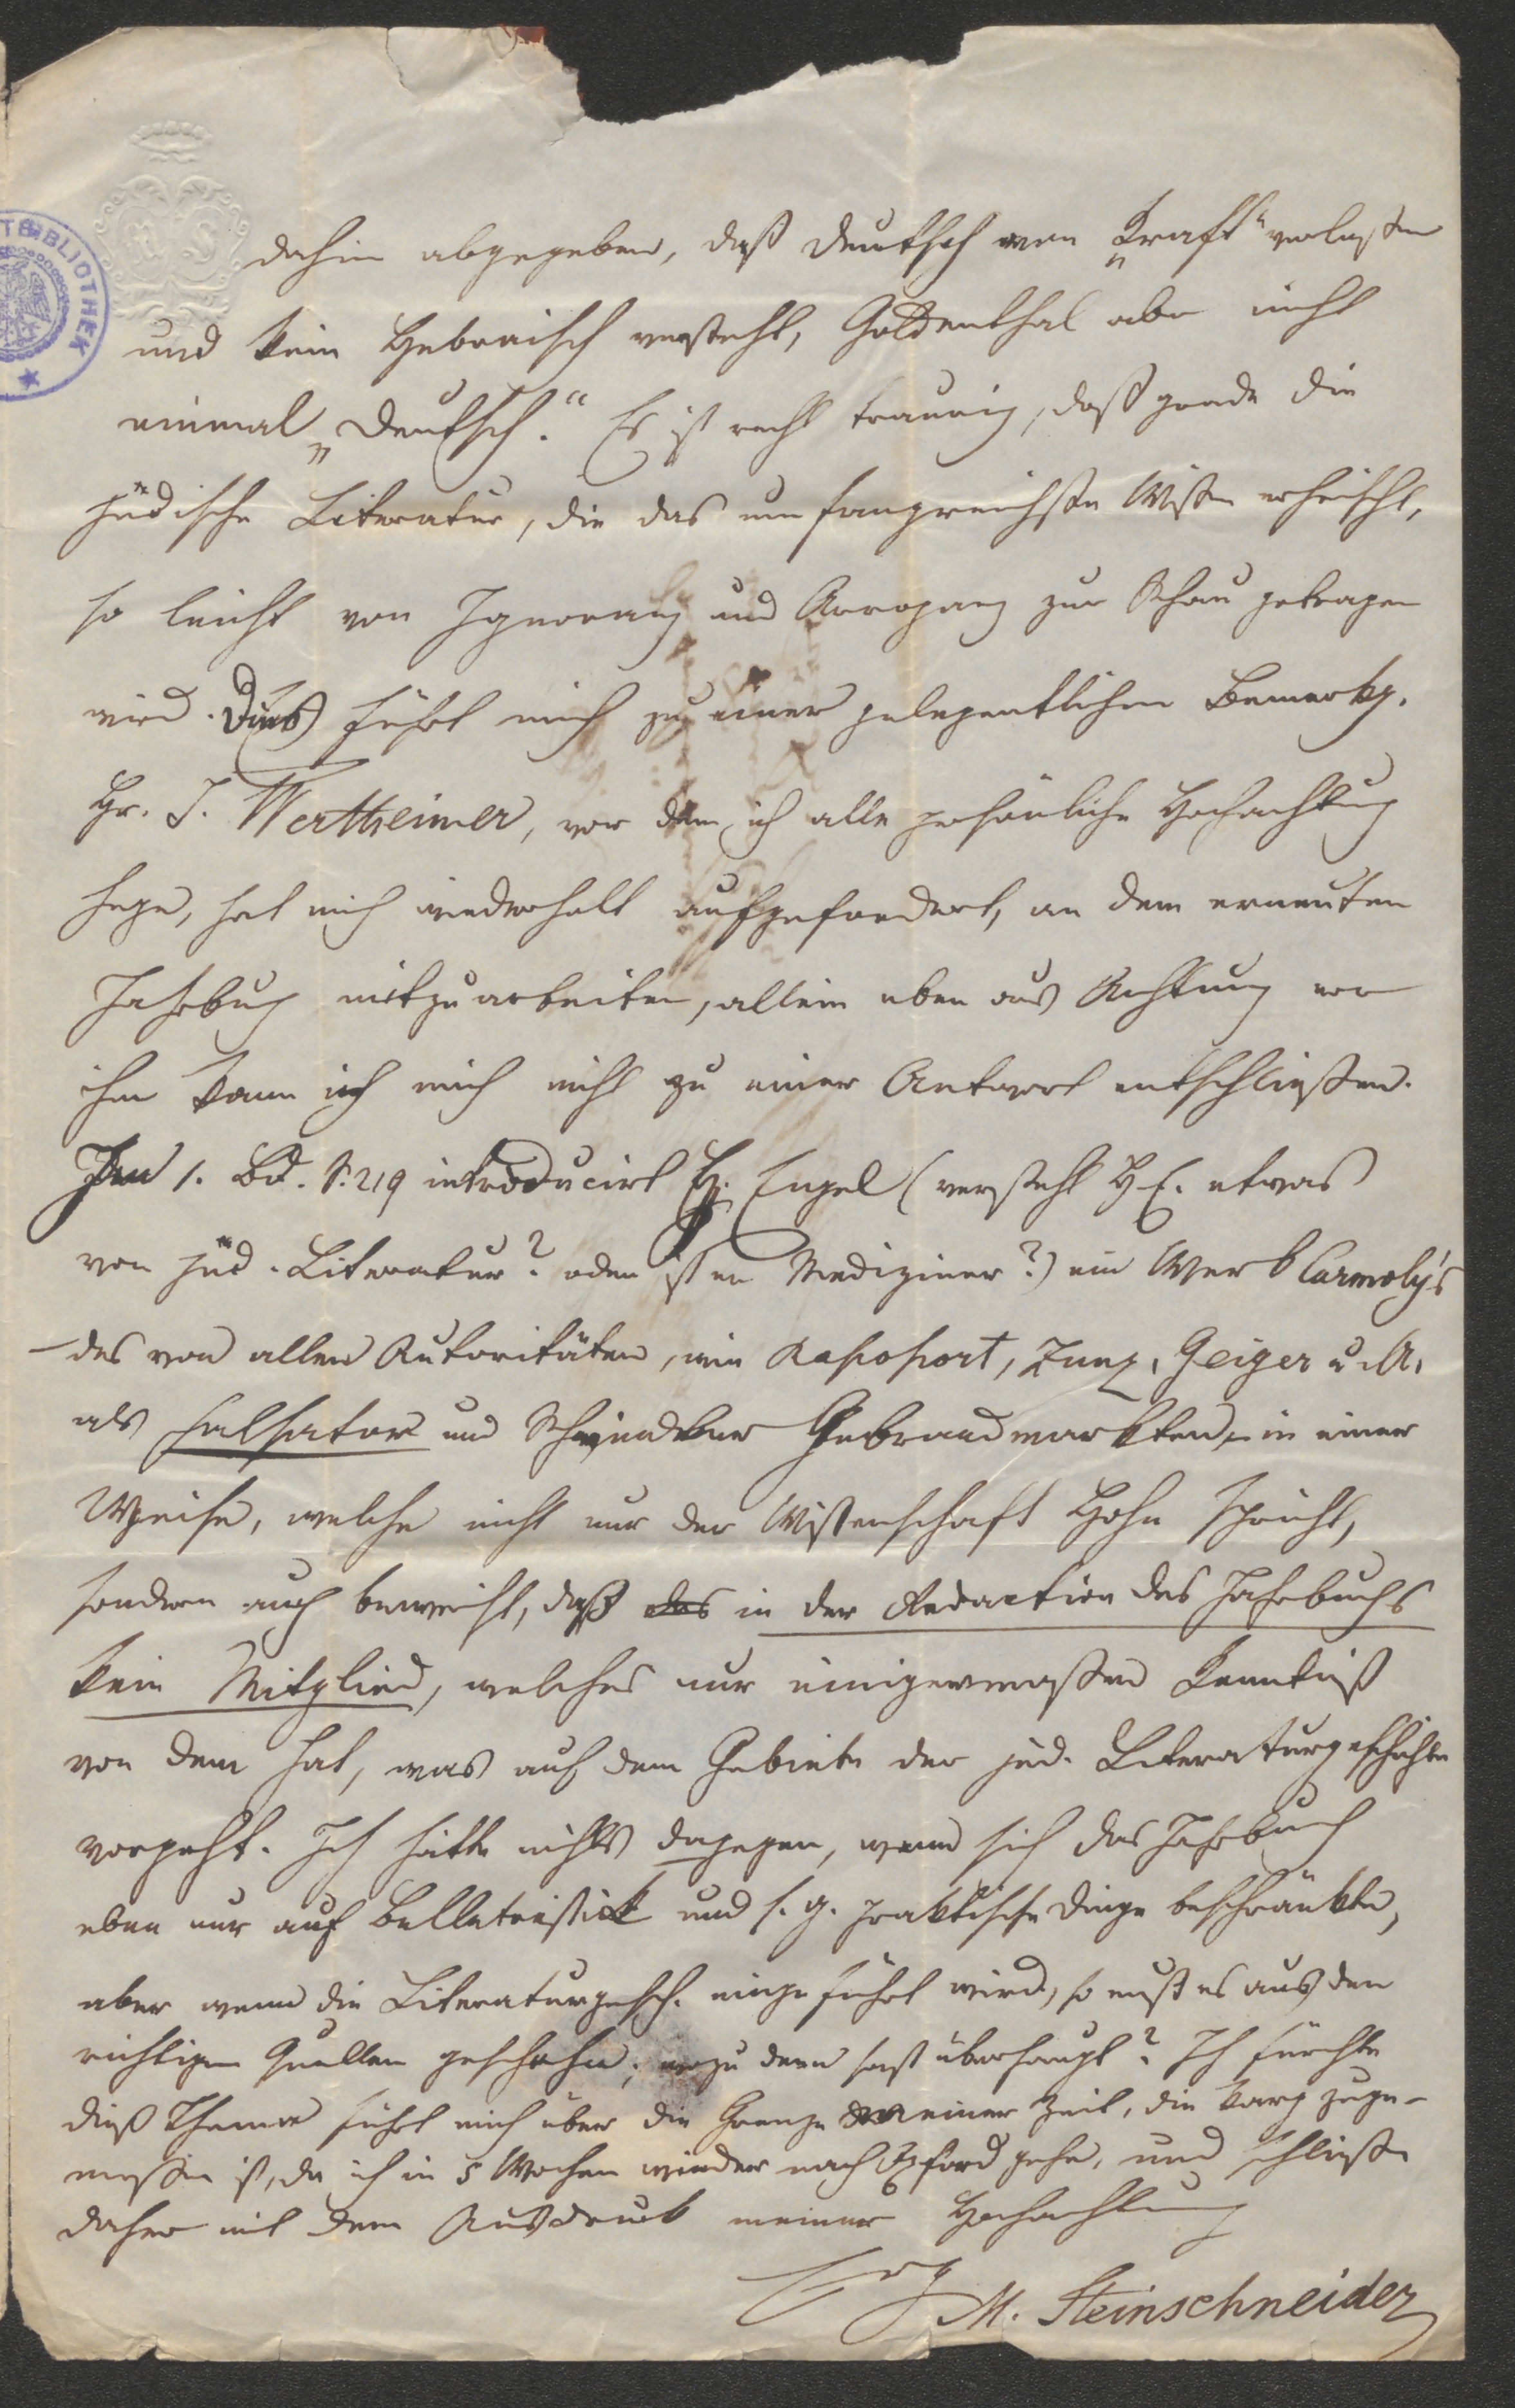 dahin abgegeben, daß Deutsch von „Kraft“ verlassen
und kein Hebräisch versteht, Goldenthal aber nicht
einmal „Deutsch.“ Es ist recht traurig, daß grade die
jüdische Literatur, die das umfangreichste Wissen erheischt,
so leicht von Ignoranz und Arroganz zur Schau getragen
wird. Dies führt mich zu einer gelegentlichen Bemerkg.
Hr. J. Wertheimer, vor dem ich alle persönliche Hochachtung
hege, hat mich wiederholt aufgefordert, an dem erneuten
Jahrbuch mitzuarbeiten, allein eben aus Achtung vor
ihm kann ich mich nicht zu einer Antwort entschließen.
Im 1. Bd. S. 219 introducirt H. Engel (versteht H. E. etwas
von jüd. Literatur? oder ist er Mediziner?) ein Werk Carmoly's
– des von allen Autoritäten, wie Rapoport, Zunz, Geiger u. A.
als Falsator und Schwindler Gebrandmarkten, – in einer
Weise, welche nicht nur der Wissenschaft Hohn spricht,
sondern auch beweist, daß das in der Redaction des Jahrbuchs
kein Mitglied, welches nur einigermassen Kenntniß
von dem hat, was auf dem Gebiete der jüd. Literaturgeschichte
vorgeht. Ich hätte nichts dagegen, wenn sich das Jahrbuch
eben nur auf Belletristick und s. g. praktische Dinge beschränkte,
aber wenn die Literaturgesch. eingeführt wird, so muß es aus den
richtigen Quellen geschehn; wozu denn sonst überhaupt? Ich fürchte
dieß Thema führt mich über die Grenze meiner Zeit, die karg zuge-
messen ist, da ich in 5 Wochen wieder nach Oxford gehe, und schließe
daher mit dem Ausdruck meiner Hochachtung
M. Steinschneider
BIBLIOTHEK